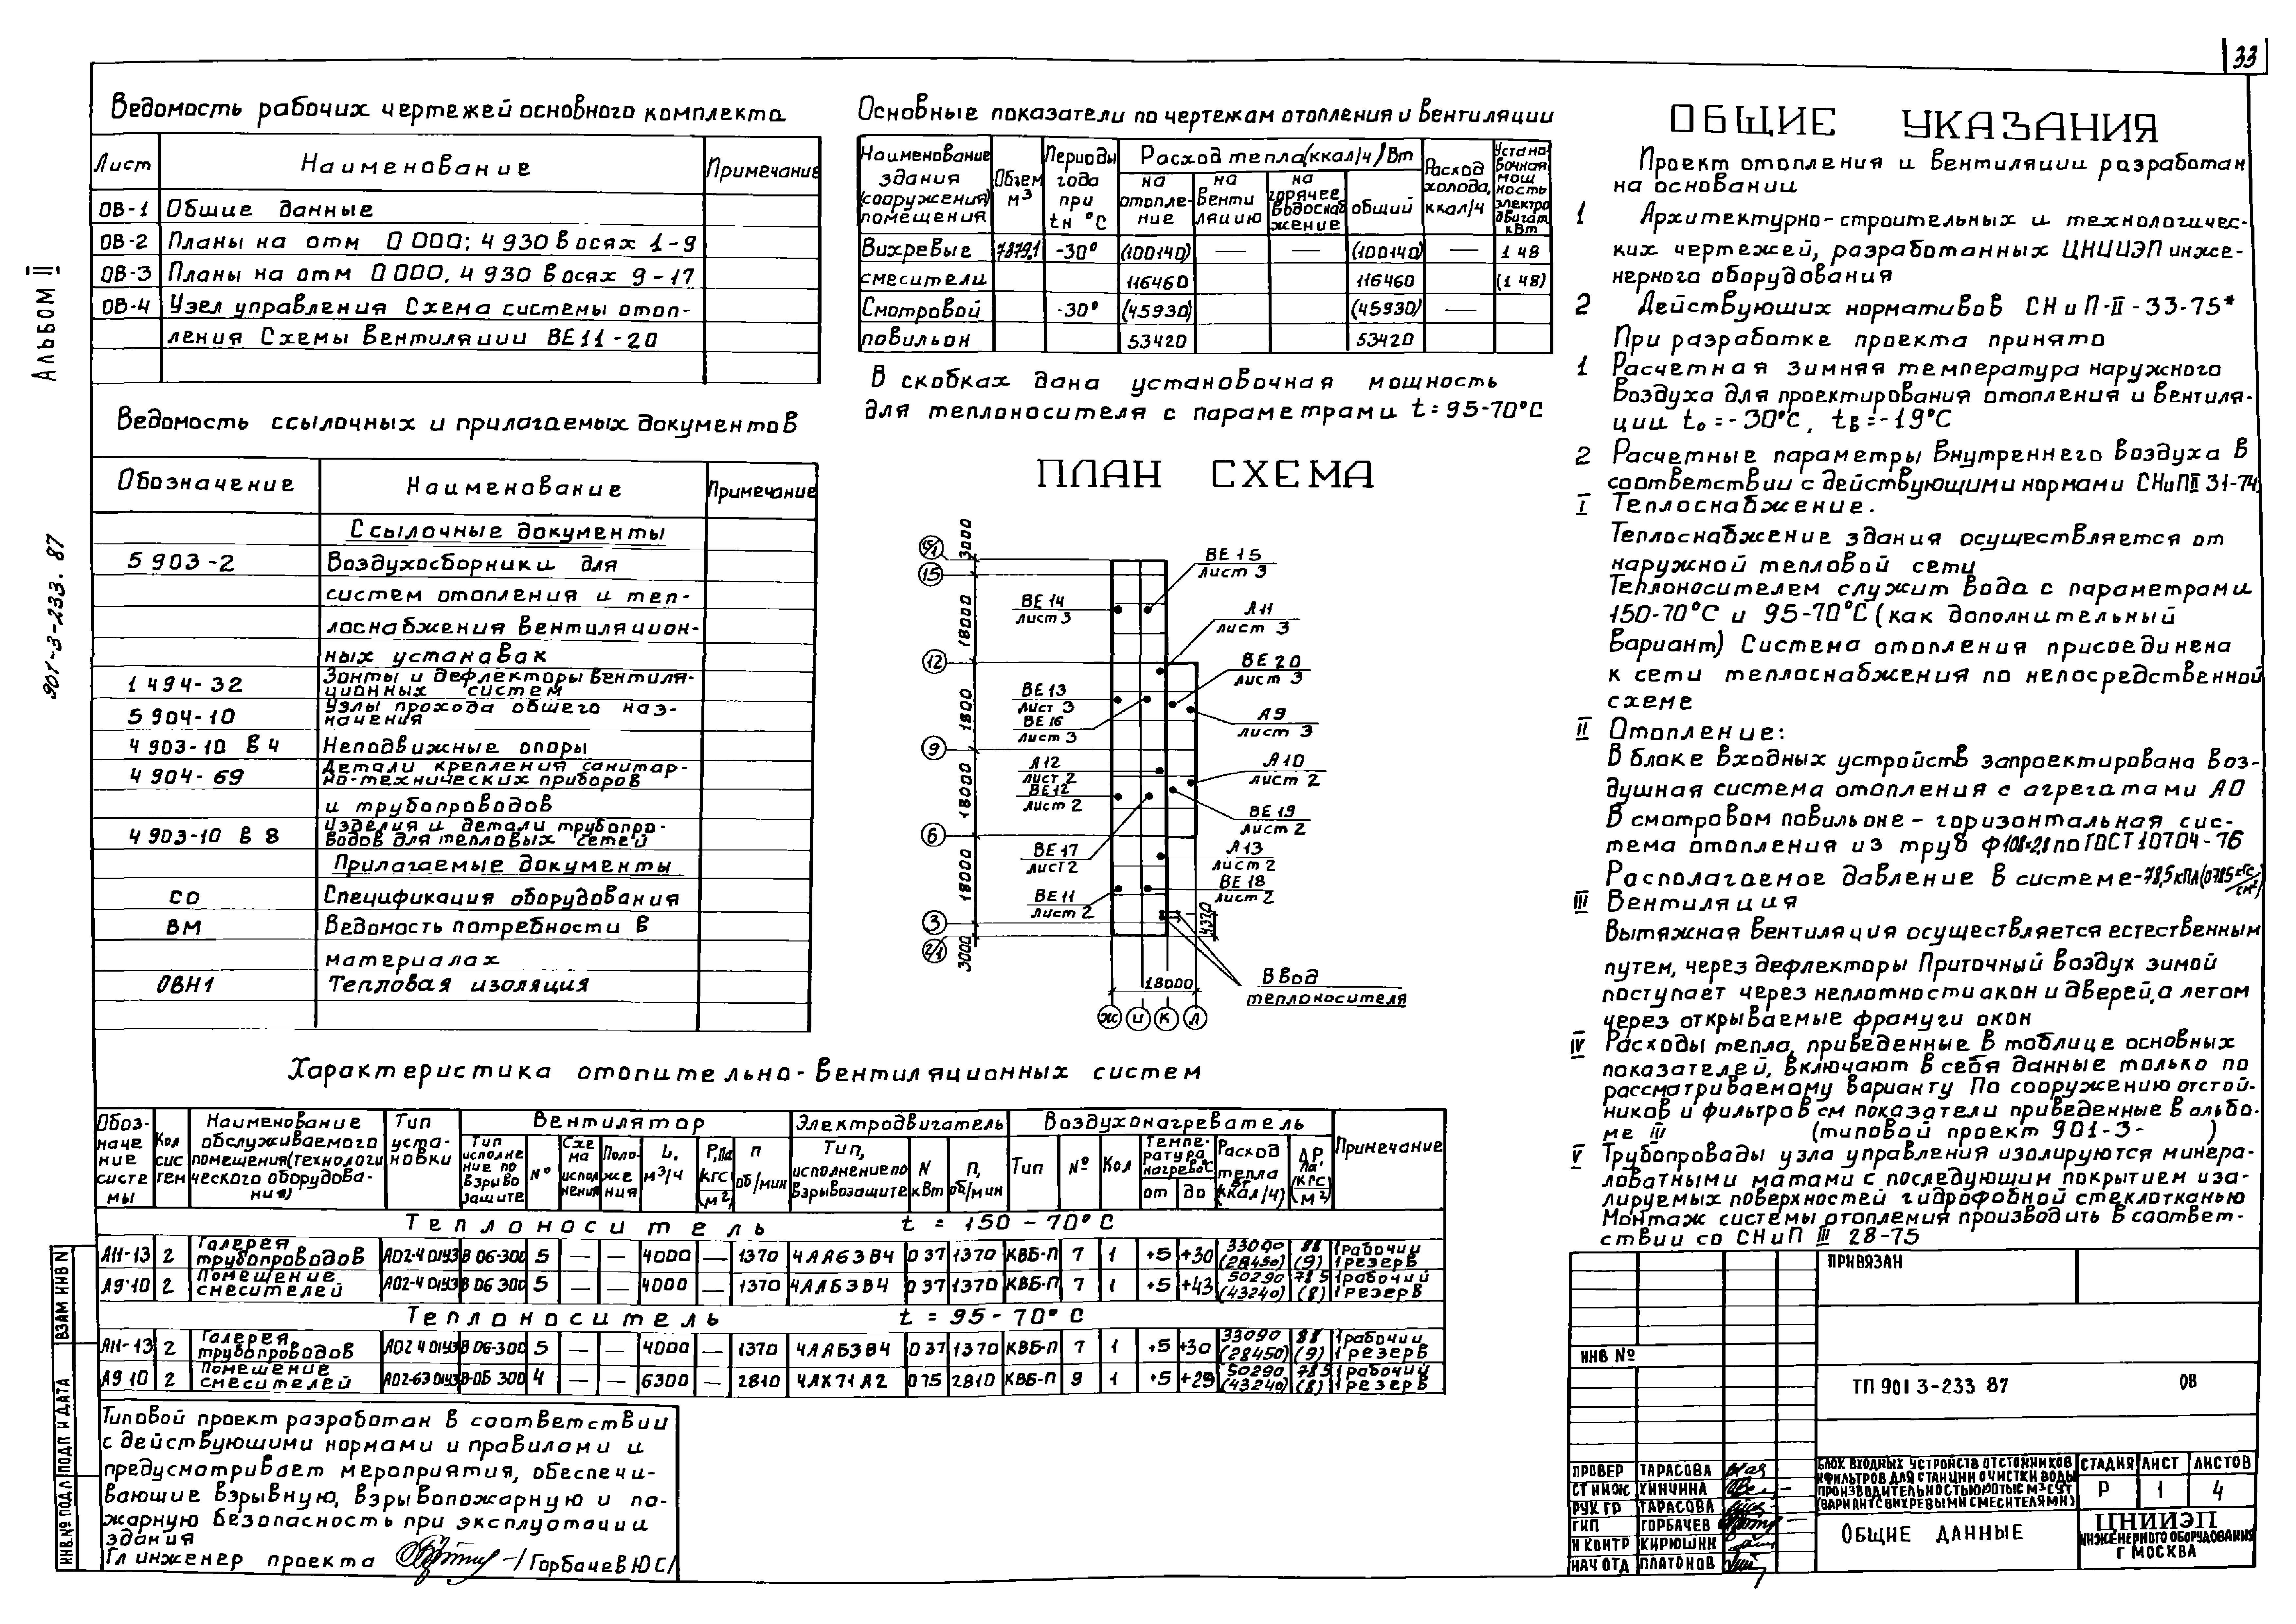 33
АЛЬБОМ II
901-3-233. 87
Ведомость рабочих чертежей основного комплекта
Лист Наименование Примечание
ОВ-1 Общие данные
ОВ-2 Планы на отм 0 000; 4 930 в осях 1-9
ОВ-3 Планы на отм 0 000, 4 930 в осях 9-17
ОВ-4 Узел управления Схема системы отоп-
ления Схемы вентиляции ВЕ11-20
Ведомость ссылочных и прилагаемых документов
Обозначение Наименование Примечание
Ссылочные документы
5 903-2 Воздухосборники для
систем отопления и теп-
лоснабжения вентиляцион-
ных установак
1 494-32 Зонты и дефлекторы вентиля-
ционных систем
5 904-10 Узлы прохода общего наз-
начения
4 903-10 В 4 Неподвижные опоры
4 904-69 Детали крепления санитар-
но-технических приборов
и трубопроводов
4 903-10 В 8 Изделия и детали трубопро-
водов для тепловых сетей
Прилагаемые документы
СО Спецификация оборудования
ВМ Ведомость потребности в
материалах
ОВН1 Тепловая изоляция
Основные показатели по чертежам отопления и вентиляции
Наименование здания (сооружения) помещения Объем м3 Периоды года при tн °С Расход тепла (ккал/ч) Вт Расход холода, ккал/ч Устано-вочная мощ ность электро двигат. кВт
на отопле-ние на венти ляцию на горячее водоснаб жение общий
Вихревые 7879,1 -30° (100140) — — (100140) — 1 48
смесители 116460 116460 (1 48)
Смотровой -30° (45930) (45930) —
повильон 53420 53420
В скобках дана установочная мощность
для теплоносителя с параметрами t=95-70°С
ПЛАН СХЕМА
15/1 15 12 9 6 3 2/1
3000 18000 1800 18000 18000 3000
ВЕ 15
лист 3
ВЕ 14
лист 3
А11
лист 3
ВЕ 20
лист 3
ВЕ 13
лист 3
ВЕ 16
лист 3
А9
лист 3
А12
лист 2
ВЕ 12
лист 2
А10
лист 2
ВЕ 19
лист 2
ВЕ 17
лист 2
А13
лист 2
ВЕ 11
лист 2
ВЕ 18
лист 2
4370
18000
Ввод
теплоносителя
Ж И К Л
ОБЩИЕ УКАЗАНИЯ
Проект отопления и вентиляции разработан
на основании
1 Архитектурно-строительных и технологичес-
ких чертежей, разработанных ЦНИИЭП инже-
нерного оборудования
2 Действующих нормативов СНиП-II-33-75*
При разработке проекта принято
1 Расчетная зимняя температура наружного
воздуха для проектирования отопления и вентиля-
ции to=-30°С, tв=-19°С
2 Расчетные параметры внутреннего воздуха в
соответствии с действующими нормами СНиП II 31-74,
I Теплоснабжение.
Теплоснабжение здания осуществляется от
наружной тепловой сети
Теплоносителем служит вода с параметрами
150-70°С и 95-70°С (как дополнительный
вариант) Система отопления присоединена
к сети теплоснабжения по непосредственной
схеме
II Отопление:
В блоке входных устройств запроектирована воз-
душная система отопления с агрегатами АО
В смотровом павильоне - горизонтальная сис-
тема отопления из труб ф108×2,8 по ГОСТ 10704-76
Располагаемое давление в системе-78,5кПа(0785 кгс/см²)
III Вентиляция
Вытяжная вентиляция осуществляется естественным
путем, через дефлекторы Приточный воздух зимой
поступает через неплотности окон и дверей, а летом
через открываемые фрамуги окон
IV Расходы тепла, приведенные в таблице основных
показателей, включают в себя данные только по
рассматриваемому варианту По сооружению отстой-
ников и фильтров см показатели приведенные в альбо-
ме III (типовой проект 901-3- )
V Трубопровады узла управления изолируются минера-
ловатными матами с последующим покрытием иза-
лируемых поверхностей гидрофобной стеклотканью
Монтаж системы отопления производить в соответ-
ствии со СНиП III 28-75
Характеристика отопительно-вентиляционных систем
Обоз-наче ние систе мы Кол сис тем Наименование обслуживаемого помещения (технологи ческого оборудова-ния) Тип уста-новки Вентилятор Электродвигатель Воздухонагреватель Примечание
Тип исполне ние по взрыво защите № Схе ма испол нения Поло-же ния L, м³/ч Р, Па кгс/м² п об/мин Тип, исполнение по взрывозащите N кВт п, об/мин Тип № Кол Темпе-ратура нагрева°С от до Расход тепла Вт (ккал/ч) ΔР Па (кгс/м²)
Теплоноситель t = 150-70°С
А11-13 2 Галерея трубопроводов АО2-4 01У3 В 06-300 5 — — 4000 — 1370 4АА63В4 0 37 1370 КВБ-П 7 1 +5 +30 33090 (28450) 88 (9) 1 рабочий 1 резерв
А9-10 2 Помещение смесителей АО2-4 01У3 В 06 300 5 — — 4000 — 1370 4АА63В4 0 37 1370 КВБ-П 7 1 +5 +43 50290 (43240) 78 5 (8) 1 рабочий 1 резерв
Теплоноситель t = 95-70°С
А11-13 2 Галерея трубопроводов АО2 4 01У3 В 06-300 5 — — 4000 — 1370 4АА63В4 0 37 1370 КВБ-П 7 1 +5 +30 33090 (28450) 88 (9) 1 рабочий 1 резерв
А9 10 2 Помещение смесителей АО2-6 3 01У3 В-06 300 4 — — 6300 — 2810 4АК71А2 0 75 2810 КВБ-П 9 1 +5 +29 50290 (43240) 78 5 (8) 1 рабочий 1 резерв
Типовой проект разработан в соответствии
с действующими нормами и правилами и
предусматривает мероприятия, обеспечи-
вающие взрывную, взрывопожарную и по-
жарную безопасность при эксплуатации
здания
Гл инженер проекта /Горбачев Ю С/
ВЗАМ ИНВ N
ПОДП И ДАТА
ИНВ.№ ПОДЛ
ПРИВЯЗАН
ИНВ №
ТП 901 3-233 87 ОВ
ПРОВЕР ТАРАСОВА
СТ ИНЖ ХИНЧИНА
РУК ГР ТАРАСОВА
ГИП ГОРБАЧЕВ
Н КОНТР КИРЮШИН
НАЧ ОТД ПЛАТОНОВ
БЛОК ВХОДНЫХ УСТРОЙСТВ ОТСТОЙНИКОВ
И ФИЛЬТРОВ ДЛЯ СТАНЦИИ ОЧИСТКИ ВОДЫ
ПРОИЗВОДИТЕЛЬНОСТЬЮ ТЫС М³/СУТ
(ВАРИАНТ С ВИХРЕВЫМИ СМЕСИТЕЛЯМИ)
СТАДИЯ ЛИСТ ЛИСТОВ
Р 1 4
ОБЩИЕ ДАННЫЕ
ЦНИИЭП
ИНЖЕНЕРНОГО ОБОРУДОВАНИЯ
Г МОСКВА